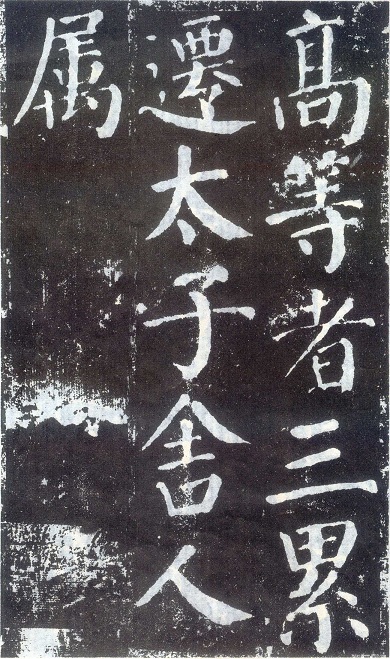 高等者三累
遷太子舍人
属